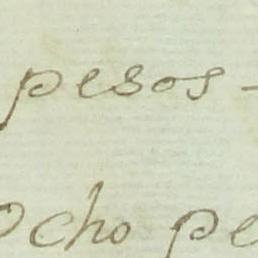 pesos -
Ocho pe